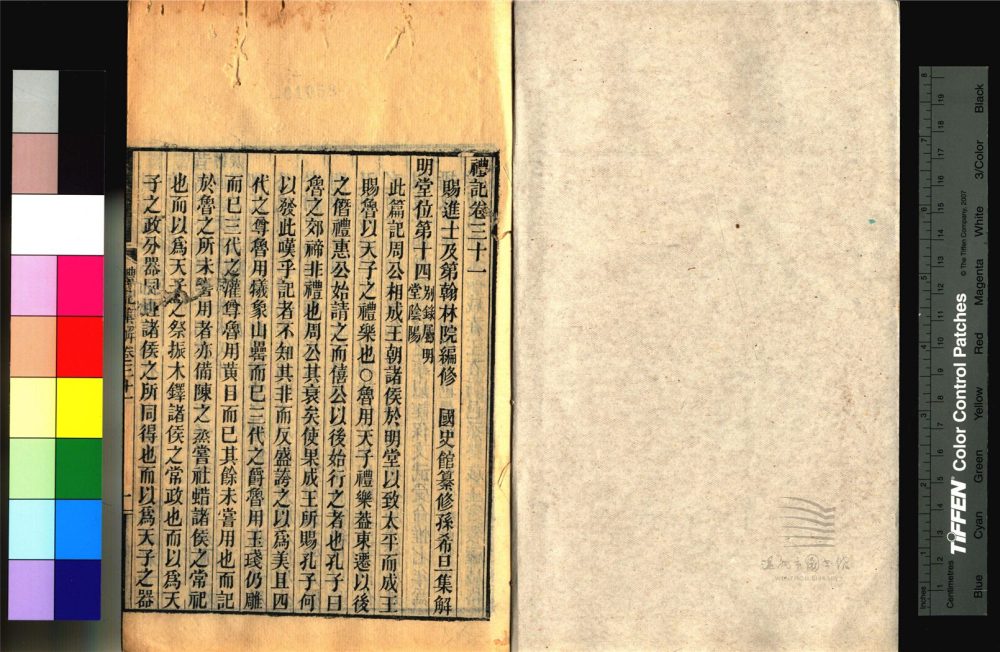 禮記卷三十一
賜進士及第翰林院編修 國史館纂修孫希旦集解
明堂位第十四 別錄屬明堂陰陽
此篇記周公相成王朝諸侯於明堂以致太平而成王
賜魯以天子之禮樂也○魯用天子禮樂蓋東遷以後
之僭禮惠公始請之而僖公以後始行之者也孔子曰
魯之郊禘非禮也周公其衰矣使果成王所賜孔子何
以發此嘆乎記者不知其非而反盛誇之以爲美且四
代之尊魯用犧象山罍而已三代之爵魯用玉琖仍雕
而已三代之灌尊魯用黃目而已其餘未嘗用也而記
於魯之所未嘗用者亦備陳之烝嘗社蜡諸侯之常祀
也而以爲天子之祭振木鐸諸侯之常政也而以爲天
子之政分器同諸侯之所同得也而以爲天子之器
禮記集解卷三十一
一
01058
温州市圖書館
WENZHOU LIBRARY
Inches
1 2 3 4 5 6 7 8
Centimetres
1 2 3 4 5 6 7 8 9 10 11 12 13 14 15 16 17 18 19
TIFFEN Color Control Patches
© The Tiffen Company, 2007
Blue
Cyan
Green
Yellow
Red
Magenta
White
3/Color
Black